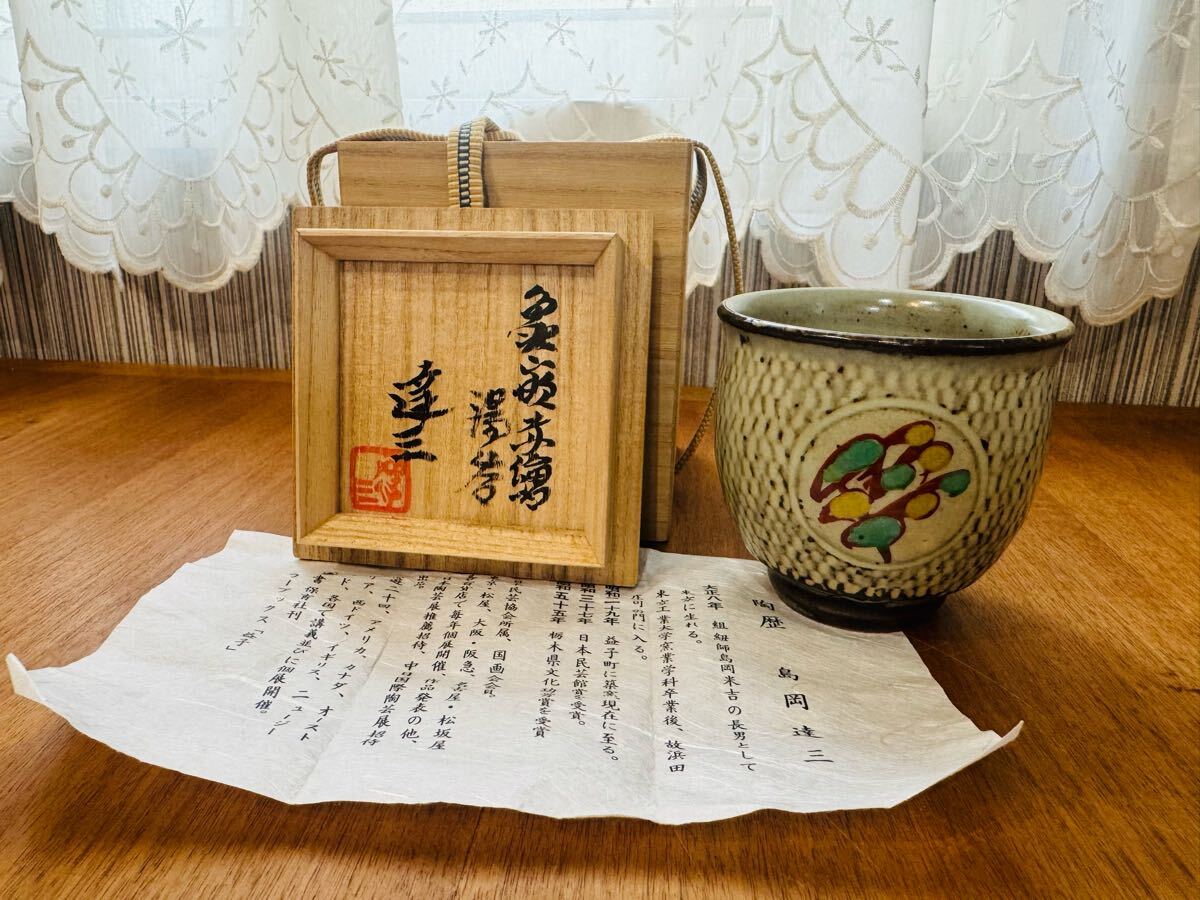 赤繪
湯呑
達三
陶歴
島岡達三
大正八年 組紐師島岡米吉の長男として
東京に生れる。
東京工業大学窯業学科卒業後、故浜田
庄司の門に入る。
昭和二十九年 益子町に築窯現在に至る。
昭和三十七年 日本民芸館賞を受賞。
昭和五十五年 栃木県文化功労賞を受賞
民芸協会所属、国画会会員。
松屋、大阪・阪急、名古屋・松坂屋
で毎年個展開催、作品発表の他、
陶芸展推薦招待、中日国際陶芸展招待
出品
二十四、アメリカ、カナダ、オースト
リア、西ドイツ、イギリス、ニュージー
ド、各国で講義並びに個展開催。
書 保育社刊
ラーブックス「益子」